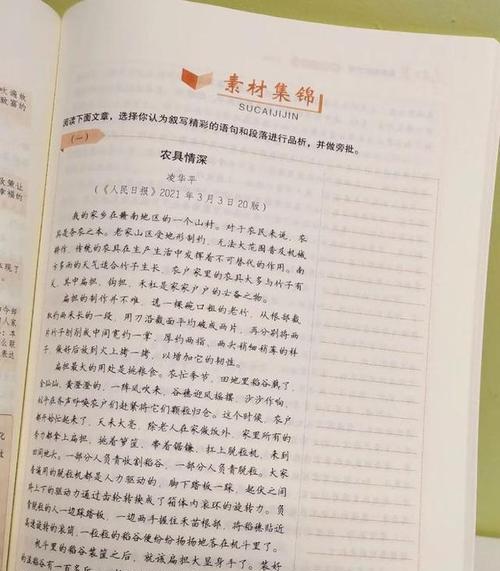 素材集锦
SUCAIJIJIN
阅读下面文章，选择你认为叙写精彩的语句和段落进行品析，并做旁批。
（一）
农具情深
凌华平
（《人民日报》2021年3月3日20版）
我的家乡在赣南地区的一个山村。对于农民来说，农
具是务农之本。老家山区受地形制约，无法大范围普及机械
耕作，传统的农具在生产生活中发挥着不可替代的作用。南
方多雨的天气适合竹子生长，农户家里的农具大多与竹子有
关，其中扁担、钩担、禾杠是家家户户的必备之物。
扁担的制作并不难，选一棵碗口粗的老竹，从根部截
取约两米长的一段，用刀沿截面平均破成两片，再分别将两
片竹子刨削成中间宽约一掌，厚约两指，两头稍细稍窄的样
子，做好后放到火上烤一烤，以增加它的韧性。
扁担最大的用处是挑粮食。农忙季节，田地里稻谷熟了，
金灿灿、黄澄澄的，一阵风吹来，谷穗迎风摇摆，沙沙作响，
似乎在齐声呼唤农户们赶紧将它们颗粒归仓。这个时候，农户
都开始忙起来了，天未大亮，除老人在家做饭外，家里所有的
劳力都拿上扁担，挑着箩筐、带着镰鐮，扛上脱粒机，来到
田间地头。一部分人负责收割稻谷，一部分人负责脱粒。大家
普遍用的脱粒机都是人力驱动的，脚下踏板一踩，起伏之间
将上下的驱动力通过齿轮转换成了箱体内滚环的旋转力。负
责的人一边踩踏板，一边两手握住禾苗根部，将稻穗贴近
高速旋转的滚筒，一粒粒的稻谷便纷纷扬扬地落在机斗里。
机斗里的稻谷装筐之后，就该扁担大显身手了。装好